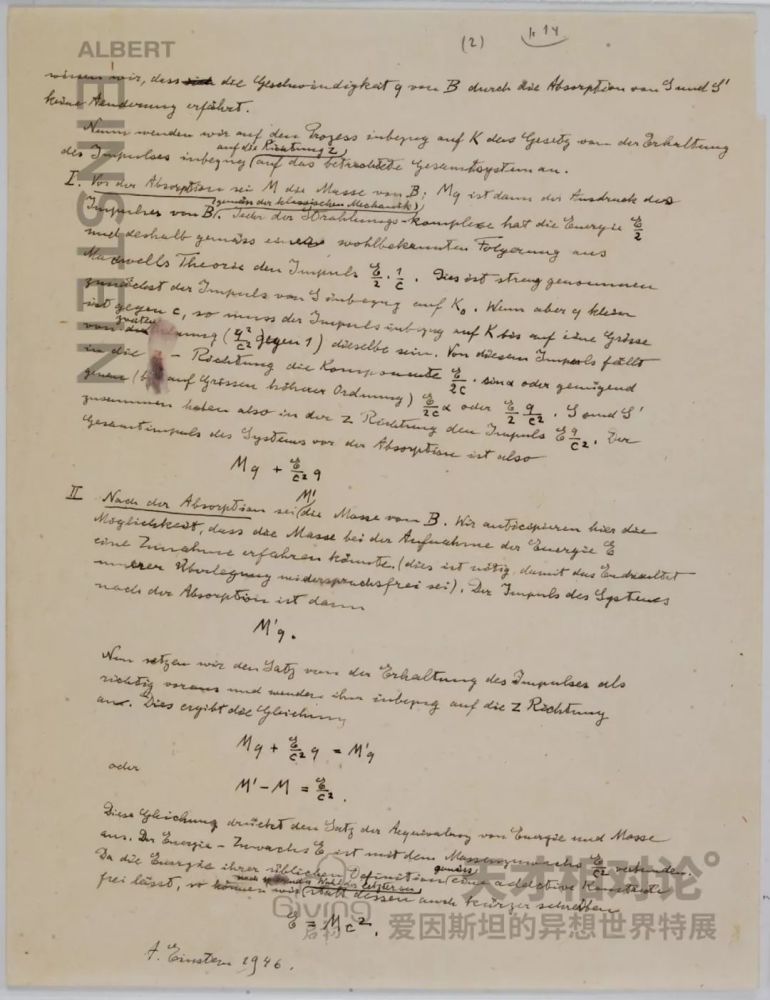 ALBERT
EINSTEIN
(2)
wissen wir, dass die Geschwindigkeit q von B durch die Absorption von S und S'
keine Aenderung erfährt.
Nun wenden wir auf den Prozess inbezug auf K das Gesetz von der Erhaltung
auf die Richtung z
des Impulses inbezug (auf das betrachtete Gesamtsystem an.
I. Vor der Absorption sei M die Masse von B; Mq ist dann der Ausdruck des
(gemäss der klassischen Mechanik)
Impulses von B. Jeder der Strahlungs-komplexe hat die Energie E/2
und deshalb gemäss einer wohlbekannten Folgerung aus
Maxwells Theorie den Impuls E/2 · 1/c. Dies ist streng genommen
zunächst der Impuls von S inbezug auf K₀. Wenn aber q klein
ist gegen c, so muss der Impuls inbezug auf K bis auf eine Grösse
von zweiter (q²/c² gegen 1) dieselbe sein. Von diesem Impuls fällt
in die - Richtung die Komponente E/2c · sin α oder genügend
genau auf Grössen höherer Ordnung) E/2c α oder E/2 · q/c². S und S'
zusammen haben also in der z Richtung den Impuls E q/c². Der
Gesamtimpuls des Systems vor der Absorption ist also
Mq + E/c² q
II Nach der Absorption sei M' die Masse von B. Wir antizipieren hier die
Möglichkeit, dass die Masse bei der Aufnahme der Energie E
eine Zunahme erfahren könnte (dies ist nötig, damit das Endresultat
unserer Überlegung widerspruchsfrei sei). Der Impuls des Systemes
nach der Absorption ist dann
M'q.
Nun setzen wir den Satz von der Erhaltung des Impulses als
richtig voraus und wenden ihn inbezug auf die z Richtung
an. Dies ergibt die Gleichung
Mq + E/c² q = M'q
oder
M' - M = E/c².
Diese Gleichung drückt den Satz der Aequivalenz von Energie und Masse
aus. Der Energie-Zuwachs E ist mit dem Massenzuwachs E/c² verbunden.
Da die Energie ihrer üblichen Definition gemäss eine additive Konstante
frei lässt, so können wir nach der Wahl der letzteren statt dessen auch kürzer schreiben
E = Mc².
A. Einstein 1946.
Giving
天才相对论
爱因斯坦的异想世界特展